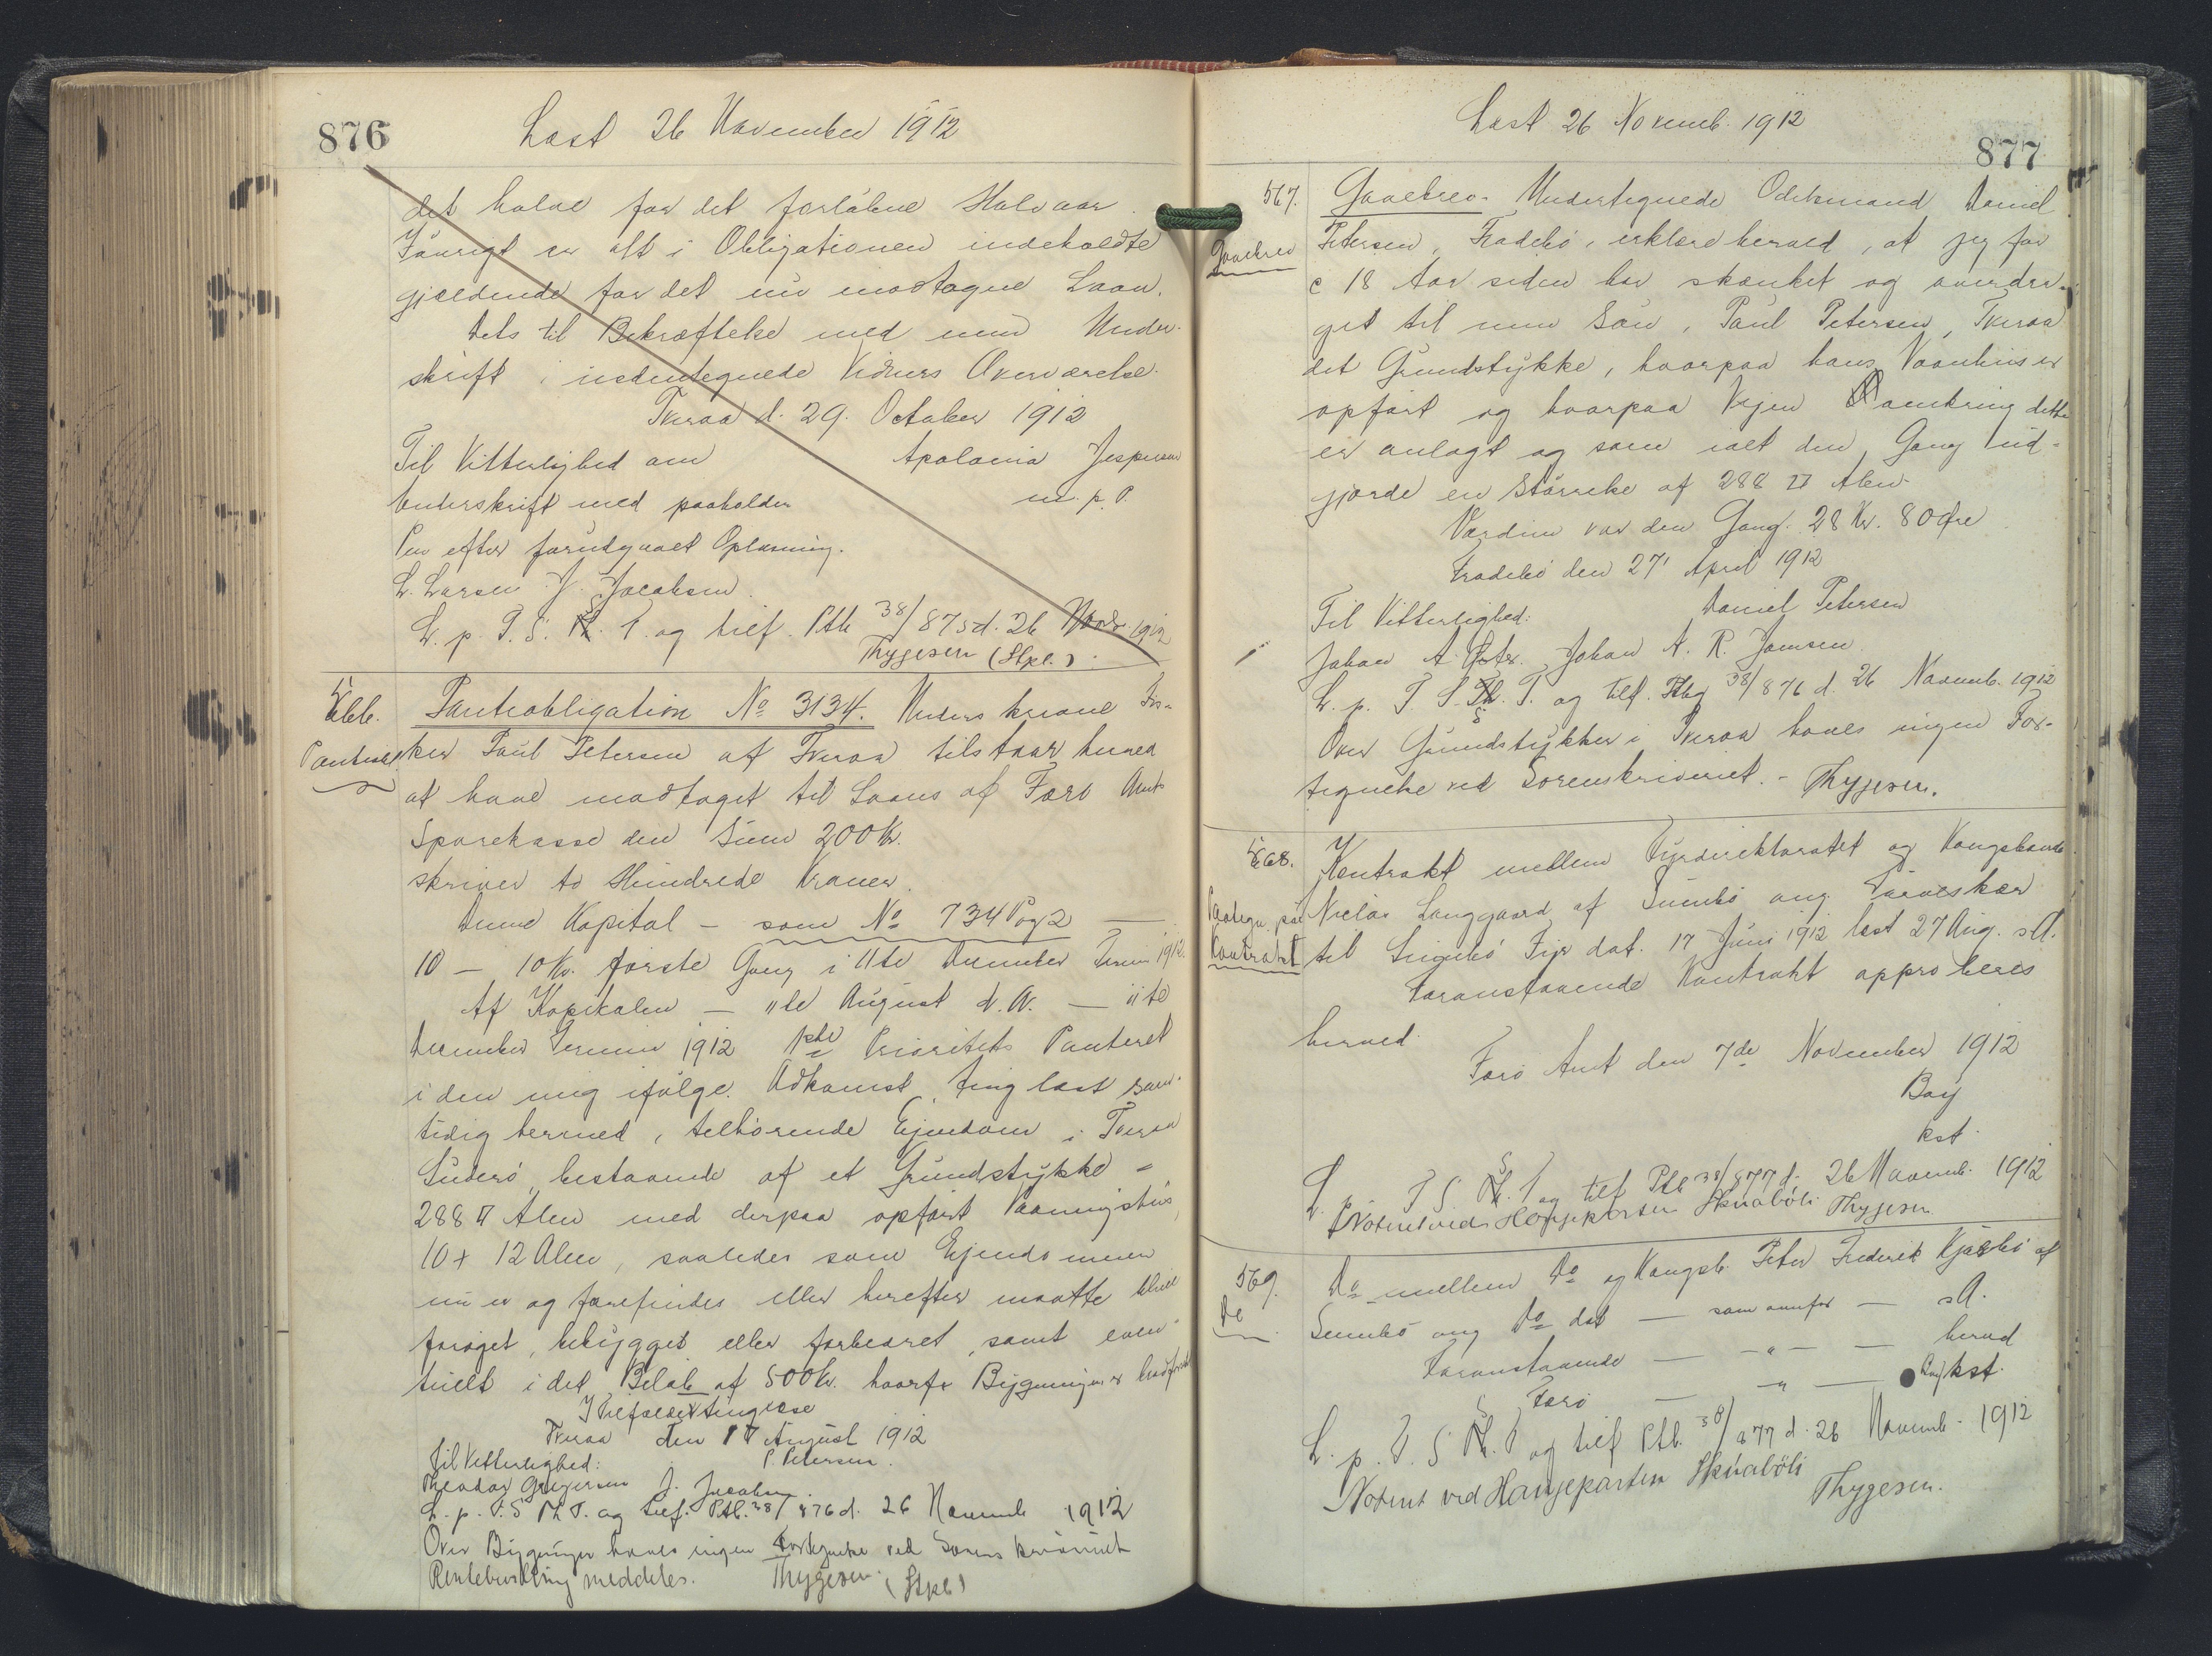 876
Læst 26 November 1912
det halve for det forløbne Halvaar.
Iøvrigt er alt i Obligationen indeholdte
gjældende for det nu modtagne Laan.
Dets til Bekræftelse med min Under-
skrift i nedentegnede Vidners Overværelse.
Tveraa d. 29. October 1912
Til Vitterlighed om Apolonia Jespersen
Underskrift med paaholden m. p. P.
Pen efter forudgaaet Oplæsning.
L. Larsen J. Jacobsen
L. p. T. S. T. og tilf. Ptb 38/875 d. 26 Novbr. 1912
Thygesen (Stpl.)
566.
Panteobligation No 3134. Underskrevne Fis-
ker Paul Petersen af Tveraa tilstaar herved
at have modtaget til Laans af Færø Amts
Sparekasse den Sum 200 Kr.
skriver to Hundrede Kroner.
Denne Kapital – som No 734 Pag 2 —
10 – 10 Kr. første Gang i 11te December Termin 1912.
Af Kapitalen – 11te August d. A. – 11te
December Termin 1912 1ste Prioritets Panteret
i den mig ifølge Adkomst, tinglæst sam-
tidig hermed, tilhørende Ejendom i Tveraa
Suderø, bestaaende af et Grundstykke =
288 □ Alen med derpaa opført Vaaningshus,
10 x 12 Alen, saaledes som Ejendommen
nu er og forefindes eller herefter maatte blive
forøget, bebygget eller forbedret, samt even-
tuelt i det Beløb af 500 Kr. hvorfor Bygningen er brandforsikr
I Tilfælde Tinglæse
Tveraa den 17 August 1912
Til Vitterlighed: P. Petersen.
Theodor Gregersen J. Jacobsen.
L. p. T. S. T. og tilf. Ptb. 38/876 d. 26 Novemb 1912
Over Bygninger haves ingen Fortegnelse ved Sorenskriveriet
meddeles. Thygesen. (Stpl.)
Læst 26 Novemb. 1912
877
567.
Gavebrev
Gavebrev. Undertegnede Odelsmand Daniel
Petersen, Frodebø, erklære herved, at jeg for
c 18 Aar siden har skænket og overdra-
get til min Søn, Paul Petersen, Tveraa
det Grundstykke, hvorpaa hans Vaanhus er
opført og hvorpaa Vejen omkring dette
er anlagt og som ialt den Gang ud-
gjorde en Størrelse af 288 □ Alen.
Værdien var den Gang 28 Kr. 80 Øre
Frodebø den 27' April 1912
Til Vitterlighed: Daniel Petersen
Johan A. Johan A. R. Joensen.
L. p. T. S. T. og tilf. Ptb 38/876 d. 26 Novemb. 1912
Over Grundstykker i Tveraa haves ingen For-
tegnelse ved Sorenskriveriet. – Thygesen.
568.
Paategn. paa
Kontrakt
Kontrakt mellem Fyrdirektoratet og Kongsbonde
Niclas Langgaard af Sumbø ang. Tørveskær
til Fyr dat. 17 Juni 1912 læst 27 Aug. s.A.
Foranstaaende Kontrakt approberes
herved.
Færø Amt den 7de November 1912
Bay
kst.
L. p. T. S. T. og tilf Ptb 38/877 d. 26 Novemb. 1912
Noteret ved Hovjeparten Skualöli Thygesen.
569.
Do
Do mellem Do og Kongsb. Peter Frederik Kjærbø af
Sumbø ang Do dat — som ovenfor — s.A.
Foranstaaende — – " – — herved
Færø — " — Bay kst.
L. p. T. S. T og tilf Ptb. 38/877 d. 26 Novemb. 1912
Noteret ved Hovjeparten Skualöli
Thygesen.